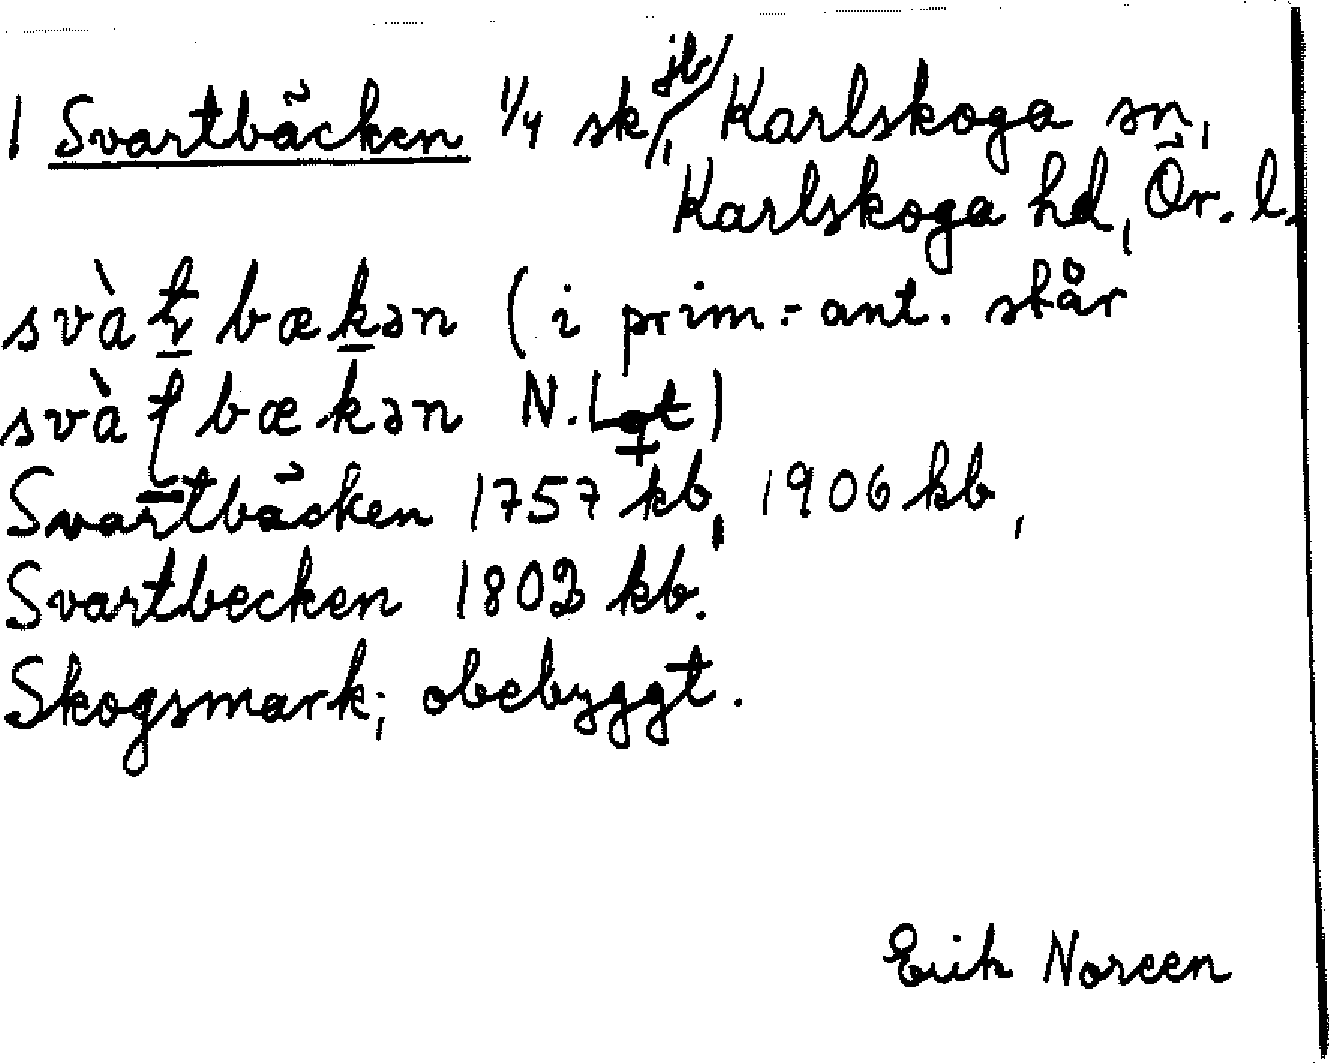 1 Svartbäcken 1/4 sk, jb Karlskoga sn,
Karlskoga hd, Ör. l.
svàt bækən (i prim.-ant. står
svàʈ bækən N.Lgt)
Svartbäcken 1757 kb, 1906 kb,
Svartbecken 1803 kb.
Skogsmark; obebyggt.
Erik Noreen